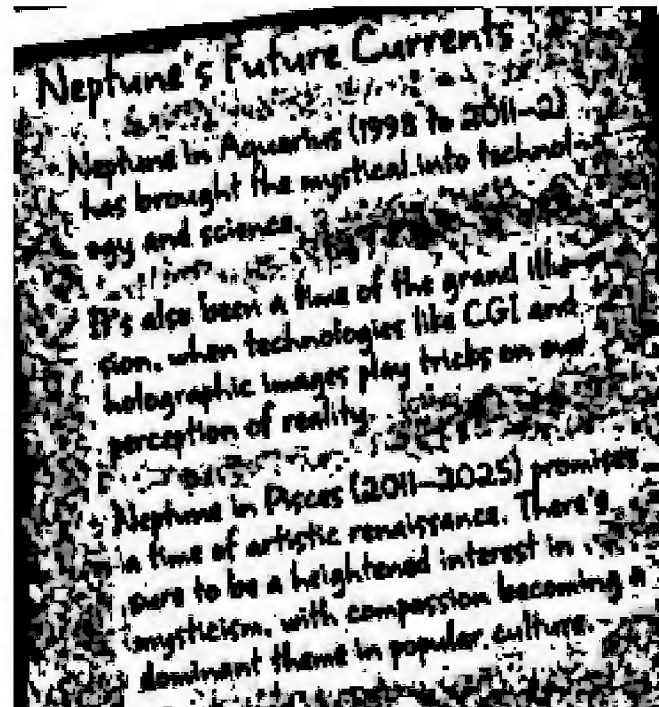 Neptune's Future Currents
Neptune in Aquarius (1998 to 2011–2)
has brought the mystical into technol-
ogy and science.
It's also been a time of the grand illu-
sion, when technologies like CGI and
holographic images play tricks on our
perception of reality.
Neptune in Pisces (2011–2025) promises
a time of artistic renaissance. There's
sure to be a heightened interest in
mysticism, with compassion becoming a
dominant theme in popular culture.